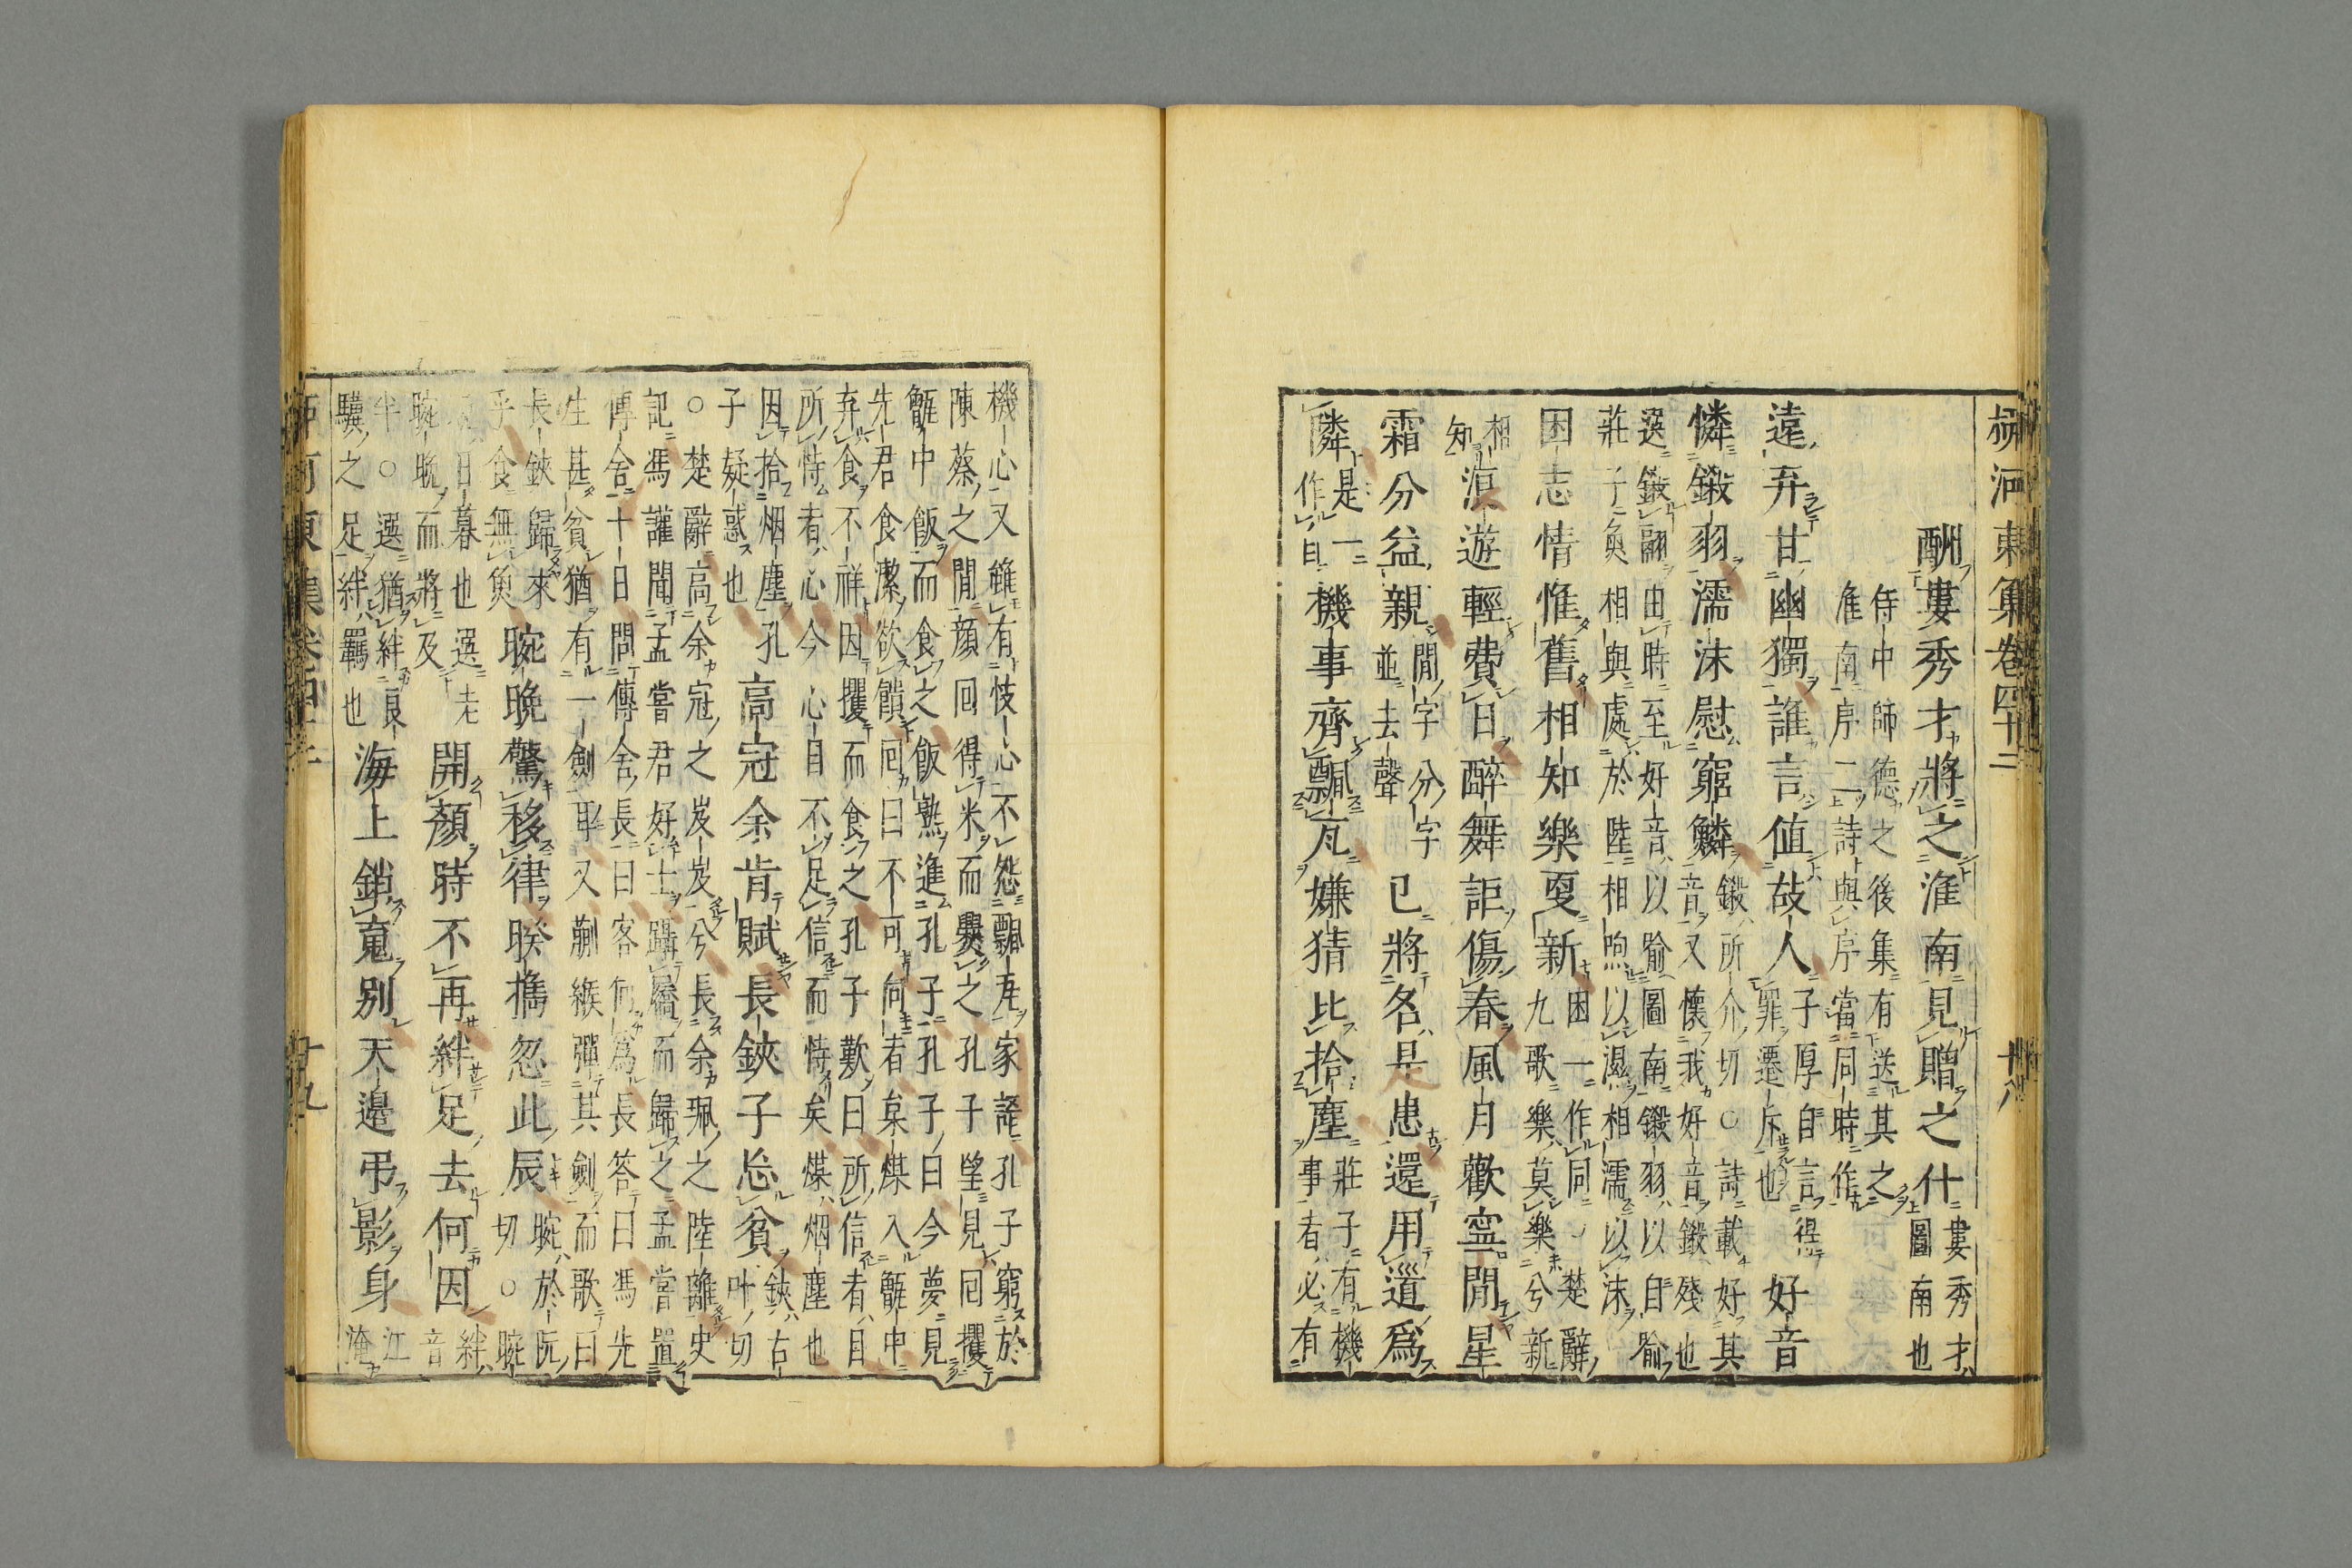 柳河東集卷四十二　十八
酬婁秀才將之淮南見贈之什
婁秀才
圖南也
侍中師德之後集有送其之
淮南序二詩與序當同時作
遠弃甘幽獨誰言值故人
子厚自言得
罪遷斥也
好音
憐鎩羽濡沫慰窮鱗
鎩所介切○詩載好其
音又懷我好音鎩殘也
選鎩翮由時至好音以喻圖南鎩羽以自喻
莊子魚相與處於陸相呴以濕相濡以沫
困志情惟舊相知樂更新
困一作同○楚辭
九歌樂莫樂兮新
相
知
浪遊輕費日醉舞詎傷春風月歡寧間星
霜分益親
間字分字
並去聲
已將名是患還用道爲
隣
是一
作自
機事齊飄瓦嫌猜比拾塵
莊子有機
事者必有
機心又雖有忮心不怨飄瓦家語孔子窮於
陳蔡之間顏回得米而爨之孔子望見回攫
甑中飯而食之飯熟進孔子孔子曰今夢見
先君食潔欲饋回曰不可向者炱煤入甑中
弃食不祥因攫而食之孔子歎曰所信者目
所恃者心今心目不足信而恃矣煤烟塵也
因拾烟塵孔
子疑惑也
高冠余肯賦長鋏子忘貧
鋏古
叶切
○楚辭高余冠之岌岌兮長余珮之陸離史
記馮讙聞孟嘗君好士躡屩而歸之孟嘗置
傳舍十日問傳舍長曰客何爲長答曰馮先
生甚貧猶有一劍耳又蒯緱彈其劍而歌曰
長鋏歸來
乎食無魚
晼晚驚移律暌攜忽此辰
晼於阮
切○晼
晚日暮也選老
晼晚而將及
開顏時不再絆足去何因
絆音
半○選猶絆良
驥之足絆羈也
海上銷䰟別天邊弔影身
江
淹
柳河東集卷四十二　十九